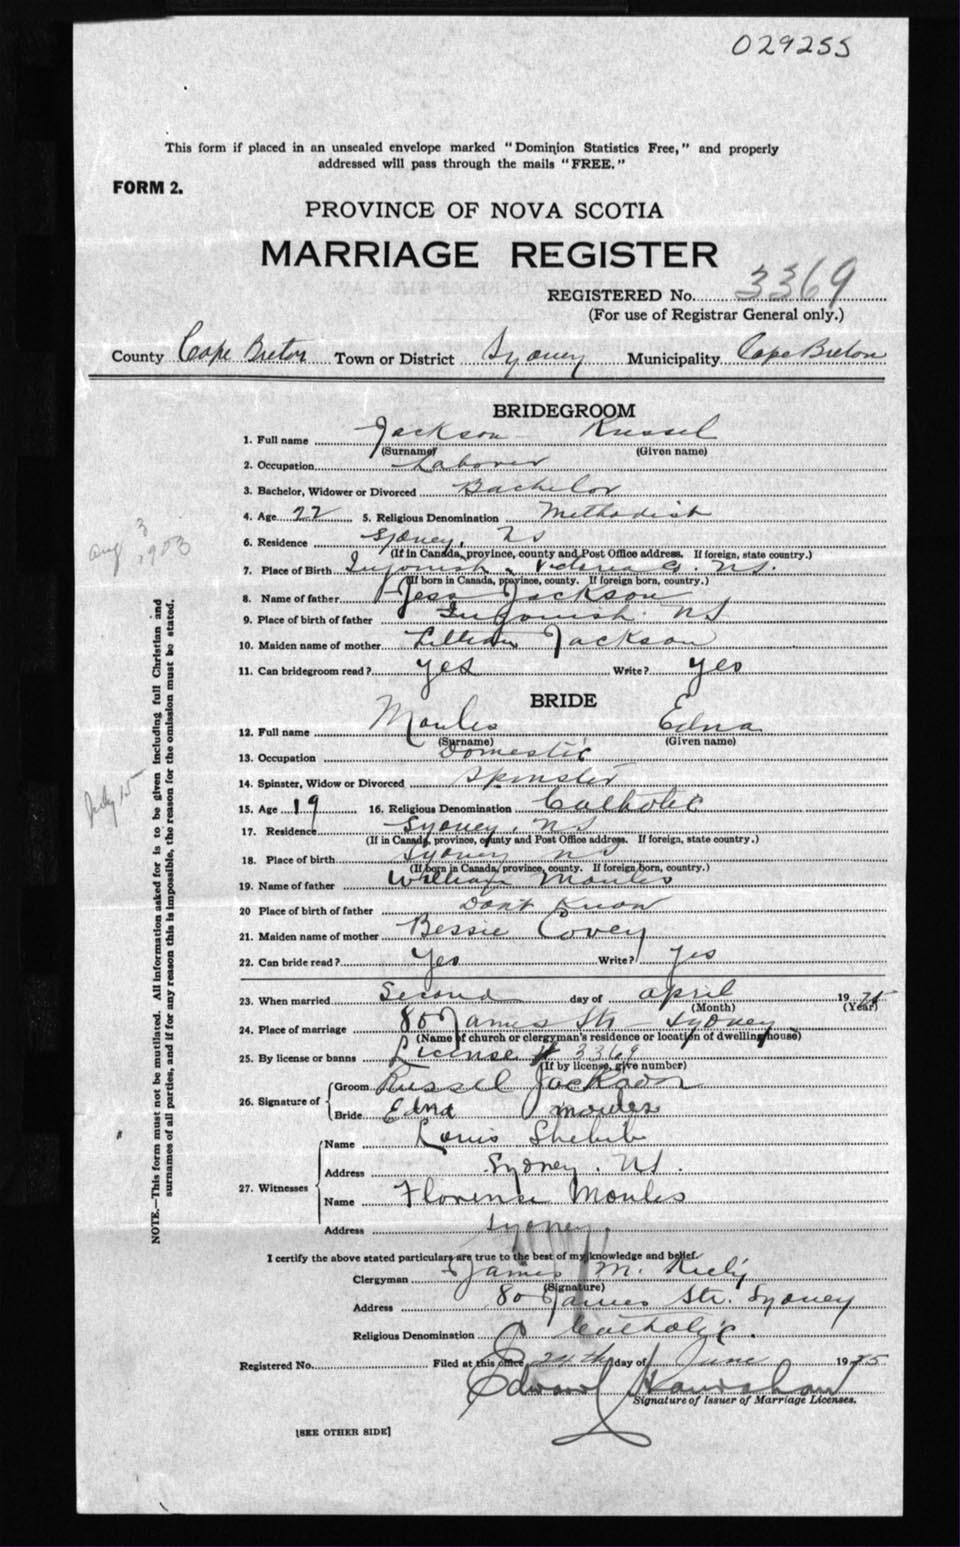 029255
This form if placed in an unsealed envelope marked "Dominion Statistics Free," and properly
addressed will pass through the mails "FREE."
FORM 2.
PROVINCE OF NOVA SCOTIA
MARRIAGE REGISTER
REGISTERED No. 3369
(For use of Registrar General only.)
County Cape Breton Town or District Sydney Municipality Cape Breton
BRIDEGROOM
1. Full name Jackson Russel
(Surname) (Given name)
2. Occupation Laborer
3. Bachelor, Widower or Divorced Bachelor
4. Age 22 5. Religious Denomination Methodist
6. Residence Sydney, NS
(If in Canada, province, county and Post Office address. If foreign, state country.)
7. Place of Birth Ingonish, Victoria Co. NS.
(If born in Canada, province, county. If foreign born, country.)
8. Name of father Jess Jackson
9. Place of birth of father Ingonish NS
10. Maiden name of mother Lillian Jackson
11. Can bridegroom read? yes Write? yes
Aug 3
1903
BRIDE
12. Full name Moules Edna
(Surname) (Given name)
13. Occupation Domestic
14. Spinster, Widow or Divorced Spinster
15. Age 19 16. Religious Denomination Catholic
17. Residence Sydney, NS
(If in Canada, province, county and Post Office address. If foreign, state country.)
18. Place of birth Sydney NS
(If born in Canada, province, county. If foreign born, country.)
19. Name of father William Moules
20 Place of birth of father Dont Know
21. Maiden name of mother Bessie Covey
22. Can bride read? Yes Write? Yes
July 15
NOTE.—This form must not be mutilated. All information asked for is to be given including full Christian and
surnames of all parties, and if for any reason this is impossible, the reason for the omission must be stated.
23. When married Second day of April 1925
(Month) (Year)
24. Place of marriage 80 James Str Sydney
(Name of church or clergyman's residence or location of dwelling house)
25. By license or banns License # 3369
(If by license, give number)
26. Signature of Groom Russel Jackson
Bride Edna Moules
27. Witnesses Name Louis Shebib
Address Sydney. NS.
Name Florence Moules
Address Sydney.
I certify the above stated particulars are true to the best of my knowledge and belief.
Clergyman James M. Kiely
(Signature)
Address 80 James Str. Sydney
Religious Denomination Catholic.
Registered No. Filed at this office 24th day of June 1925
Edward
Signature of Issuer of Marriage Licenses.
[SEE OTHER SIDE]